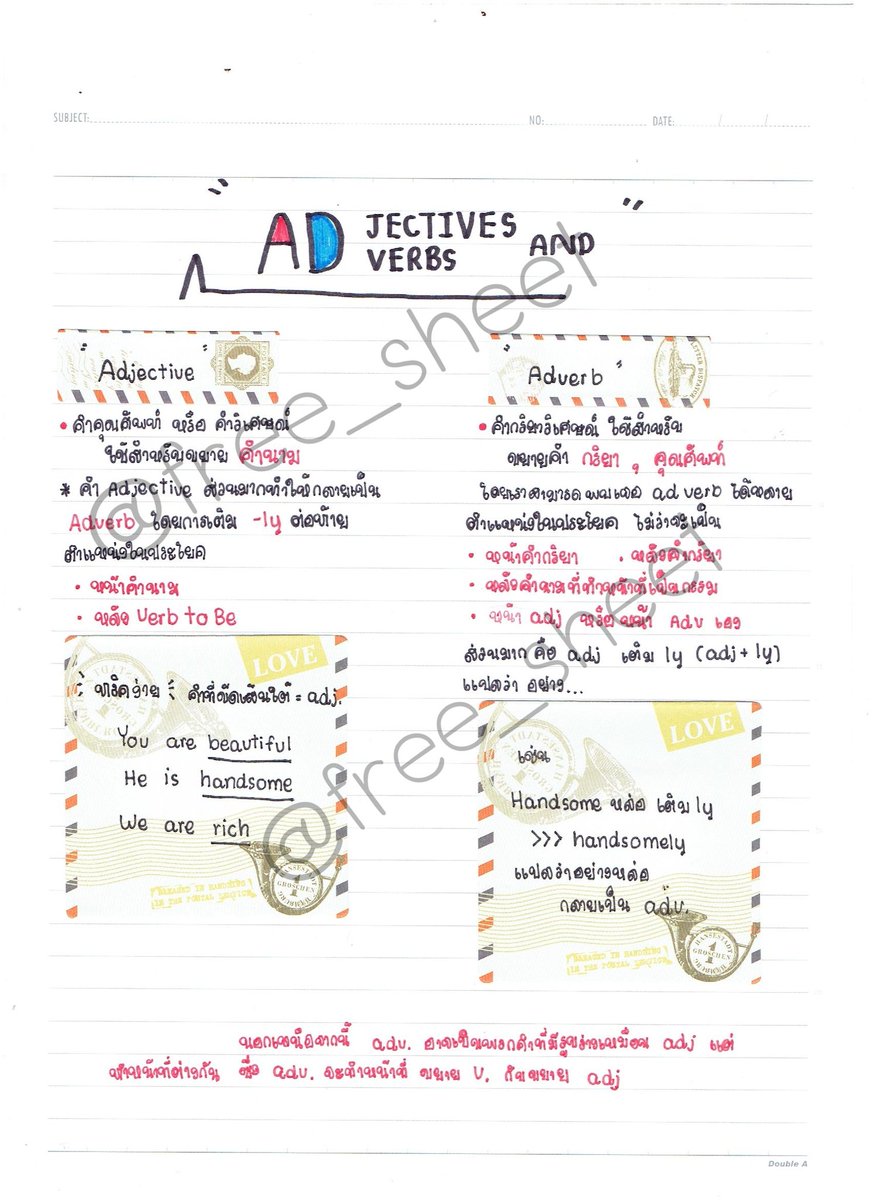 SUBJECT: NO: DATE: / /
" ADJECTIVES "
ADVERBS AND
" Adjective "
• คำคุณศัพท์ หรือ คำวิเศษณ์
ใช้สำหรับขยาย คำนาม
* คำ Adjective ส่วนมากทำให้กลายเป็น
Adverb โดยการเติม -ly ต่อท้าย
ตำแหน่งในประโยค
• หน้าคำนาม
• หลัง Verb to Be
LOVE
คำที่ขีดเส้นใต้ = adj.
You are beautiful
He is handsome
We are rich
" Adverb "
• คำกริยาวิเศษณ์ ใช้สำหรับ
ขยายคำ กริยา , คุณศัพท์
โดยเราสามารถพบเจอ adverb ได้หลาย
ตำแหน่งในประโยค ไม่ว่าจะเป็น
• หน้าคำกริยา • หลังคำกริยา
• หลังคำนามที่ทำหน้าที่เป็นกรรม
• หน้า adj หรือหน้า Adv เอง
ส่วนมาก คือ adj เติม ly (adj+ly)
แปลว่า อย่าง...
LOVE
เช่น
Handsome หล่อ เติม ly
>>> handsomely
แปลว่าอย่างหล่อ
กลายเป็น adv.
นอกเหนือจากนี้ adv. อาจเป็นพวกคำที่มีรูปร่างเหมือน adj แต่
ทำหน้าที่ต่างกัน คือ adv. จะทำหน้าที่ ขยาย V. กับขยาย adj
@free_sheet
@free_sheet
Double A